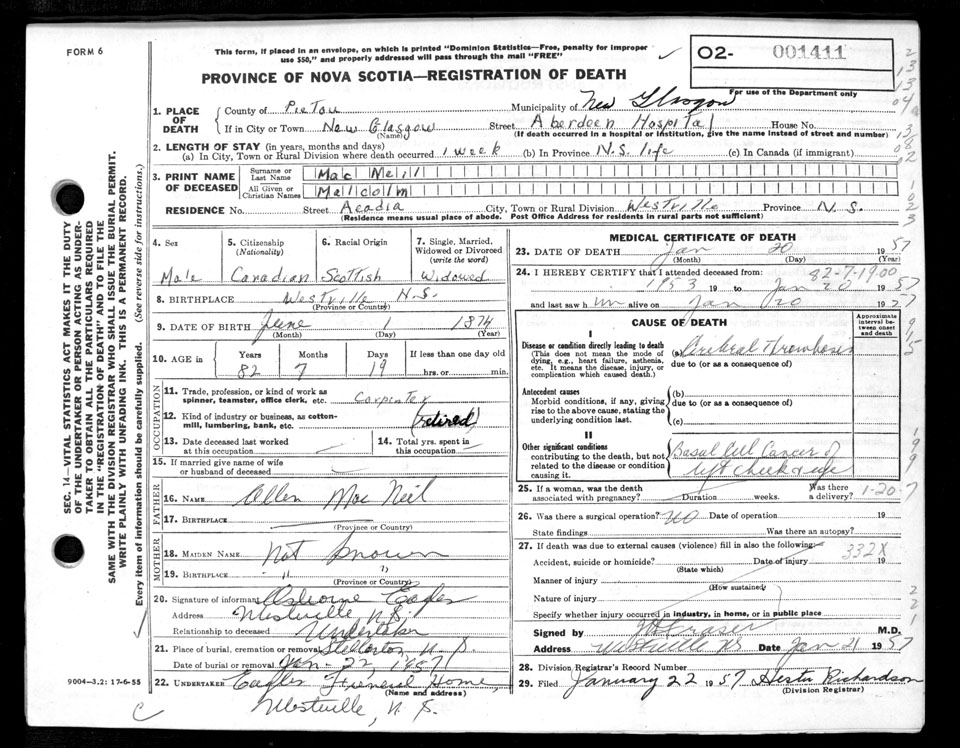 FORM 6
This form, if placed in an envelope, on which is printed "Dominion Statistics—Free, penalty for improper
use $50," and properly addressed will pass through the mail "FREE"
O2- 001411
For use of the Department only
PROVINCE OF NOVA SCOTIA—REGISTRATION OF DEATH
1. PLACE OF DEATH
County of Pictou Municipality of New Glasgow
If in City or Town New Glasgow Street Aberdeen Hospital House No.
(Name) (If death occurred in a hospital or institution, give the name instead of street and number)
2. LENGTH OF STAY (in years, months and days)
(a) In City, Town or Rural Division where death occurred 1 week (b) In Province N.S. life (c) In Canada (if immigrant)
3. PRINT NAME OF DECEASED
Surname or Last Name Mac Neill
All Given or Christian Names Malcolm
RESIDENCE No. Street Acadia City, Town or Rural Division Westville Province N.S.
(Residence means usual place of abode. Post Office Address for residents in rural parts not sufficient)
4. Sex Male
5. Citizenship (Nationality) Canadian
6. Racial Origin Scottish
7. Single, Married, Widowed or Divorced (write the word) Widowed
8. BIRTHPLACE Westville N.S.
(Province or Country)
9. DATE OF BIRTH June 1 1874
(Month) (Day) (Year)
10. AGE in Years Months Days If less than one day old
82 7 19 hrs. or min.
OCCUPATION
11. Trade, profession, or kind of work as
spinner, teamster, office clerk, etc. Carpenter
12. Kind of industry or business, as cotton-
mill, lumbering, bank, etc. (retired)
13. Date deceased last worked
at this occupation
14. Total yrs. spent in
this occupation
15. If married give name of wife
or husband of deceased
FATHER
16. NAME Allen Mac Neil
17. BIRTHPLACE
(Province or Country)
MOTHER
18. MAIDEN NAME Not Known
19. BIRTHPLACE " "
(Province or Country)
20. Signature of informant Osborne Eagles
Address Westville N.S.
Relationship to deceased Undertaker
21. Place of burial, cremation or removal Stellarton N.S.
Date of burial or removal Jan-22, 1957
22. UNDERTAKER Eagles Funeral Home,
(Name and address)
Westville, N.S.
9004-3.2: 17-6-55
C
MEDICAL CERTIFICATE OF DEATH
23. DATE OF DEATH Jan 20 1957
(Month) (Day) (Year)
82-7-1900
24. I HEREBY CERTIFY that I attended deceased from:
1953 19 to Jan 20 1957
and last saw him alive on Jan 20 1957
CAUSE OF DEATH
Approximate interval between onset and death
I
Disease or condition directly leading to death
(This does not mean the mode of
dying, e.g., heart failure, asthenia,
etc. It means the disease, injury, or
complication which caused death.)
(a) Cerebral Thrombosis
due to (or as a consequence of)
Antecedent causes
Morbid conditions, if any, giving
rise to the above cause, stating the
underlying condition last.
(b)
due to (or as a consequence of)
(c)
II
Other significant conditions
contributing to the death, but not
related to the disease or condition
causing it.
Basal Cell Cancer of
left cheek &
25. If a woman, was the death
associated with pregnancy? Duration weeks. Was there
a delivery? 1-20-7
26. Was there a surgical operation? No Date of operation 19
State findings Was there an autopsy?
27. If death was due to external causes (violence) fill in also the following:
332X
Accident, suicide or homicide? Date of injury 19
(State which)
Manner of injury
(How sustained)
Nature of injury
Specify whether injury occurred in industry, in home, or in public place
Signed by Fraser M.D.
Address Westville NS Date Jan 21 1957
28. Division Registrar's Record Number
29. Filed January 22 1957 Hester Richardson
(Division Registrar)
SEC. 14—VITAL STATISTICS ACT MAKES IT THE DUTY
OF THE UNDERTAKER OR PERSON ACTING AS UNDER-
TAKER TO OBTAIN ALL THE PARTICULARS REQUIRED
IN THE "REGISTRATION OF DEATH" AND TO FILE THE
SAME WITH THE DIVISION REGISTRAR WHO SHALL ISSUE THE BURIAL PERMIT.
WRITE PLAINLY WITH UNFADING INK. THIS IS A PERMANENT RECORD.
Every item of information should be carefully supplied. (See reverse side for instructions.)